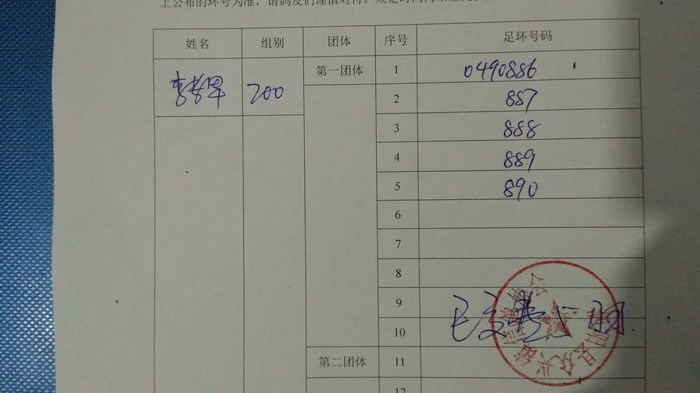 上公布的环号为准，请鸽友们谨慎对待。规定时间内未
姓名 组别 团体 序号 足环号码
第一团体 1 0490886
200
2 887
3 888
4 889
5 890
6
7
8
9
10
第二团体 11
12